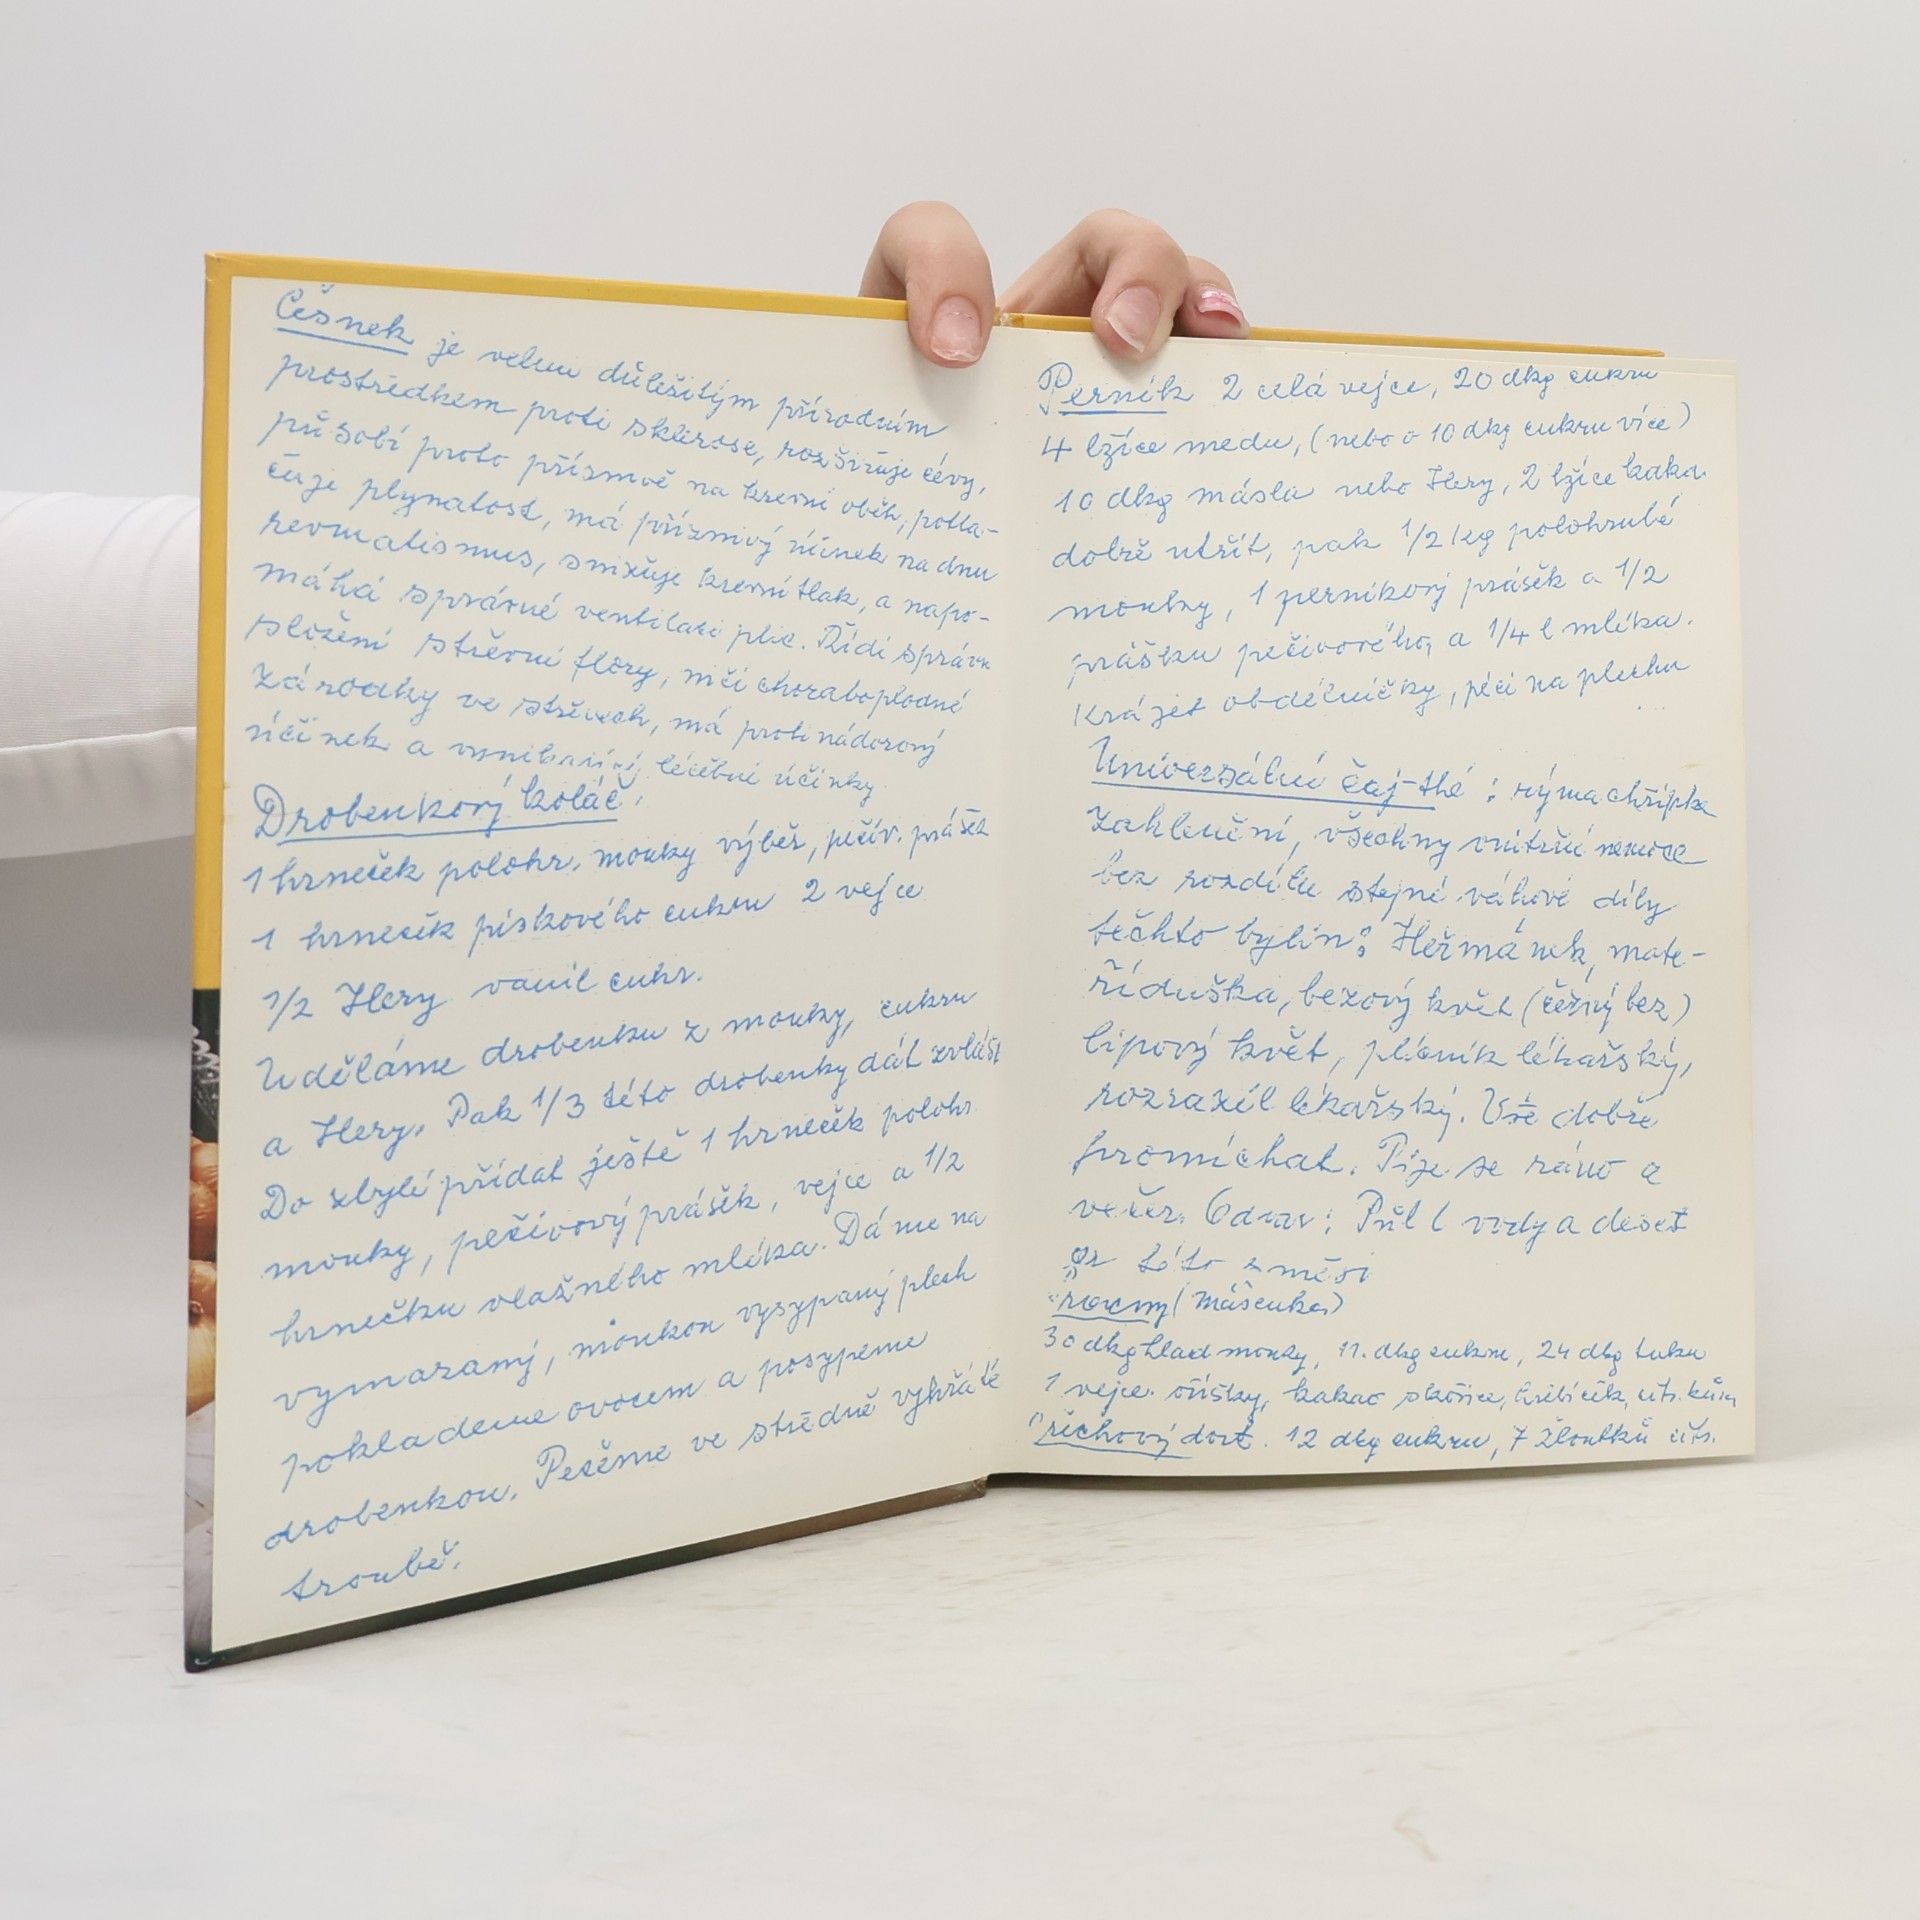 Česnek je velmi důležitým přírodním
prostředkem proti sklerose, rozšiřuje cévy,
působí proto přísnivě na krevní oběh, potla-
čuje plynatost, má příznivý účinek na dnu
revmatismus, snižuje krevní tlak, a napo-
máhá správné ventilaci plic. Řídí správn
složení střevní flory, ničí choraboplodné
zárodky ve střevech, má protinádorový
účinek a vynikající léčební účinky
Drobenkový koláč.
1 hrneček polohr. mouky výběr, pečiv. prášek
1 hrneček pískového cukru 2 vejce
1/2 Hery vanil cukr.
Uděláme drobenku z mouky, cukru
a Hery. Pak 1/3 této drobenky dát zvlášt
Do zbylé přidat ještě 1 hrneček polohr
mouky, pečivový prášek, vejce a 1/2
hrnečku vlažného mléka. Dáme na
vymazaný, moukou vysypaný plech
poklademe ovocem a posypeme
drobenkou. Pečeme ve středně vyhřáté
troubě.
Perník 2 celá vejce, 20 dkg cukru
4 lžíce medu, (nebo o 10 dkg cukru více)
10 dkg másla nebo Hery, 2 lžíce kaka
dobře utřít, pak 1/2 kg polohrubé
mouky, 1 perníkový prášek a 1/2
prášku pečivového, a 1/4 l mléka.
Krájet obdélníčky, péci na plechu
Universální čaj-thé: rýma chřipka
zahlenění, všechny vnitřní nemoce
bez rozdílu stejné váhové díly
těchto bylin: Heřmánek, mate-
řídouška, bezový květ (černý bez)
lipový květ, plicník lékařský,
rozrazil lékařský. Vše dobře
promíchat. Pije se ráno a
večer. Odvar: Půl l vody a deset
gr této směsi
(Mášenka)
30 dkg hlad mouky, 11. dkg cukru, 24 dkg tuku
1 vejce. oříšky, kakao skořice, hřebíček, citr. kůra
řechový dort. 12 dkg cukru, 7 žloutků